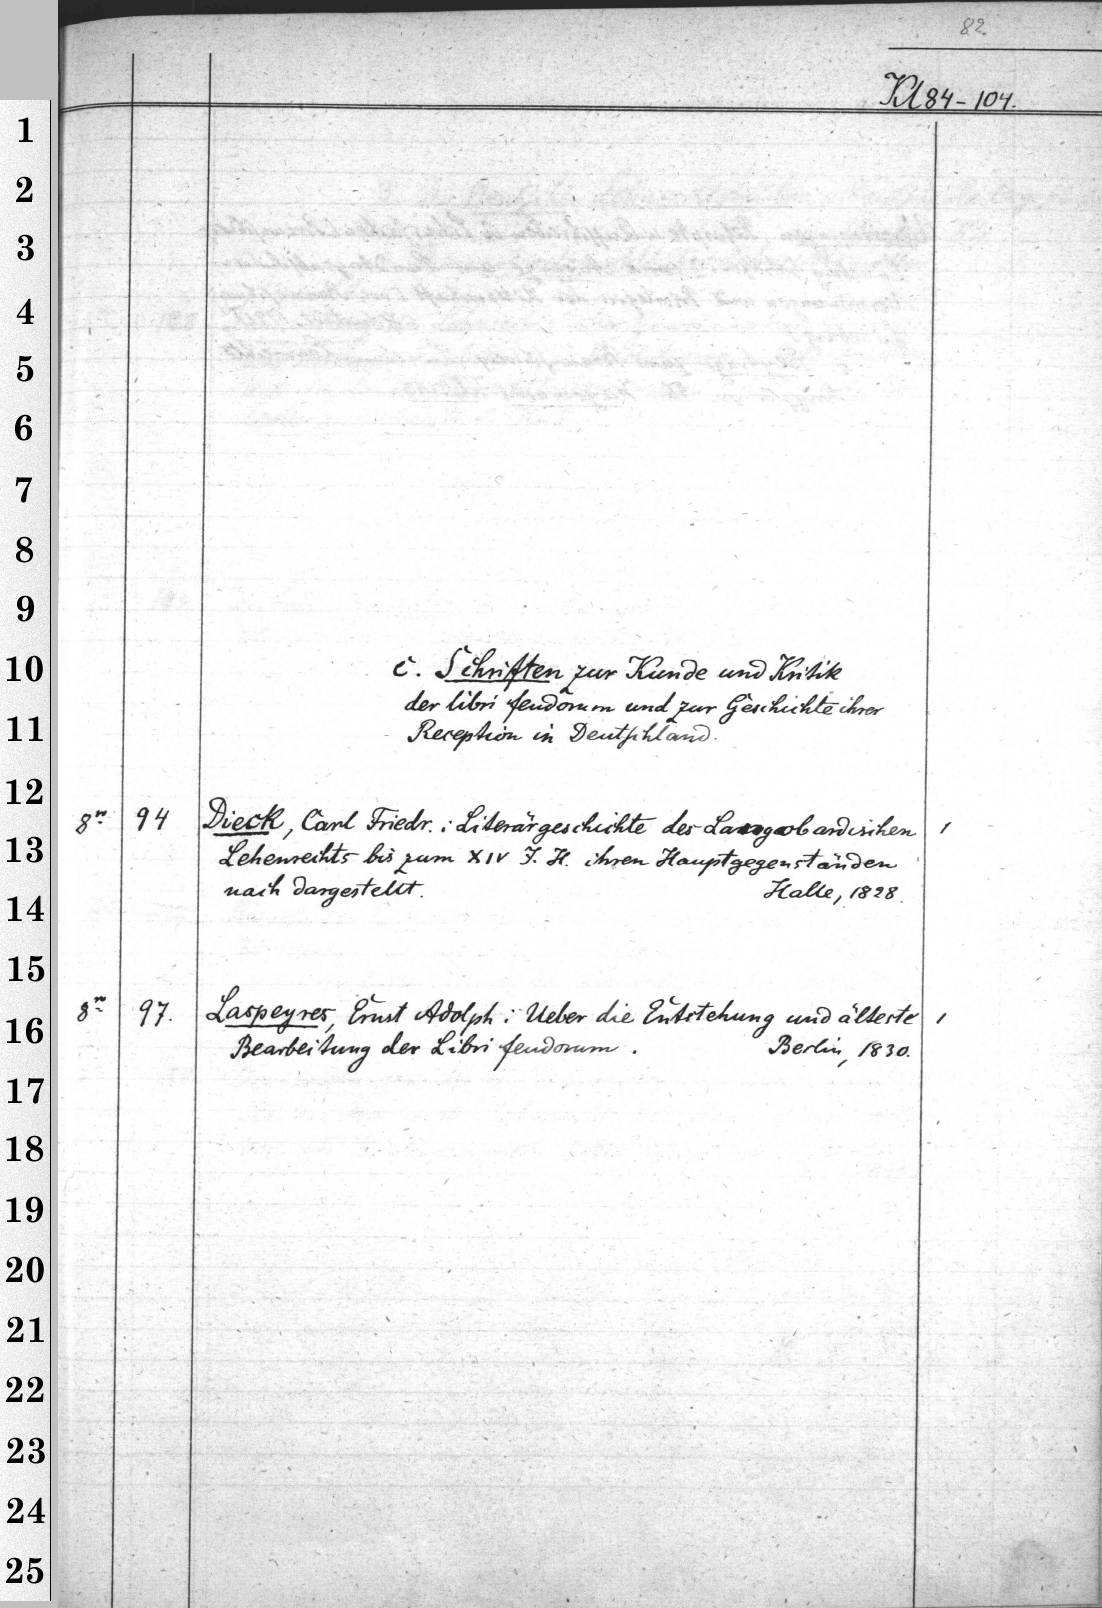 82.
Kl 84-104.
1
2
3
4
5
6
7
8
9
10
11
12
13
14
15
16
17
18
19
20
21
22
23
24
25
c. Schriften zur Kunde und Kritik
der libri feudorum und zur Geschichte ihrer
Reception in Deutschland.
8º 94 Dieck, Carl Friedr.: Literärgeschichte des Langobardischen 1
Lehenrechts bis zum XIV J. H. ihren Hauptgegenständen
nach dargestellt. Halle, 1828.
8º 97. Laspeyres, Ernst Adolph: Ueber die Entstehung und älteste 1
Bearbeitung der Libri feudorum. Berlin, 1830.